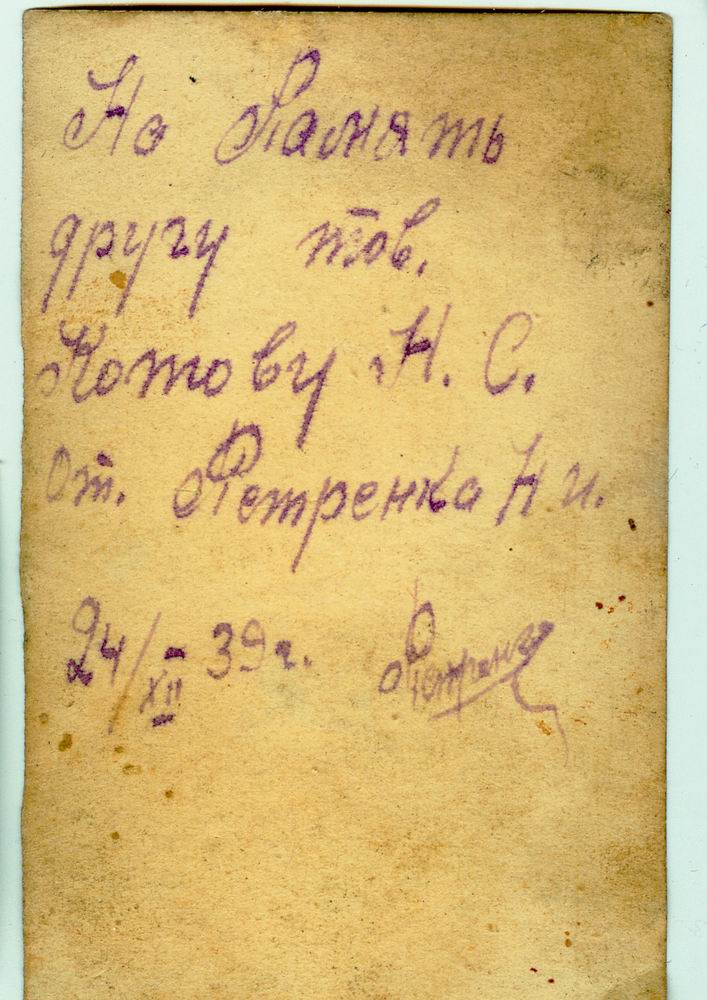 На Память
другу тов.
Котову Н. С.
от. Петренка Н И.
24/XII-39г. Петренко